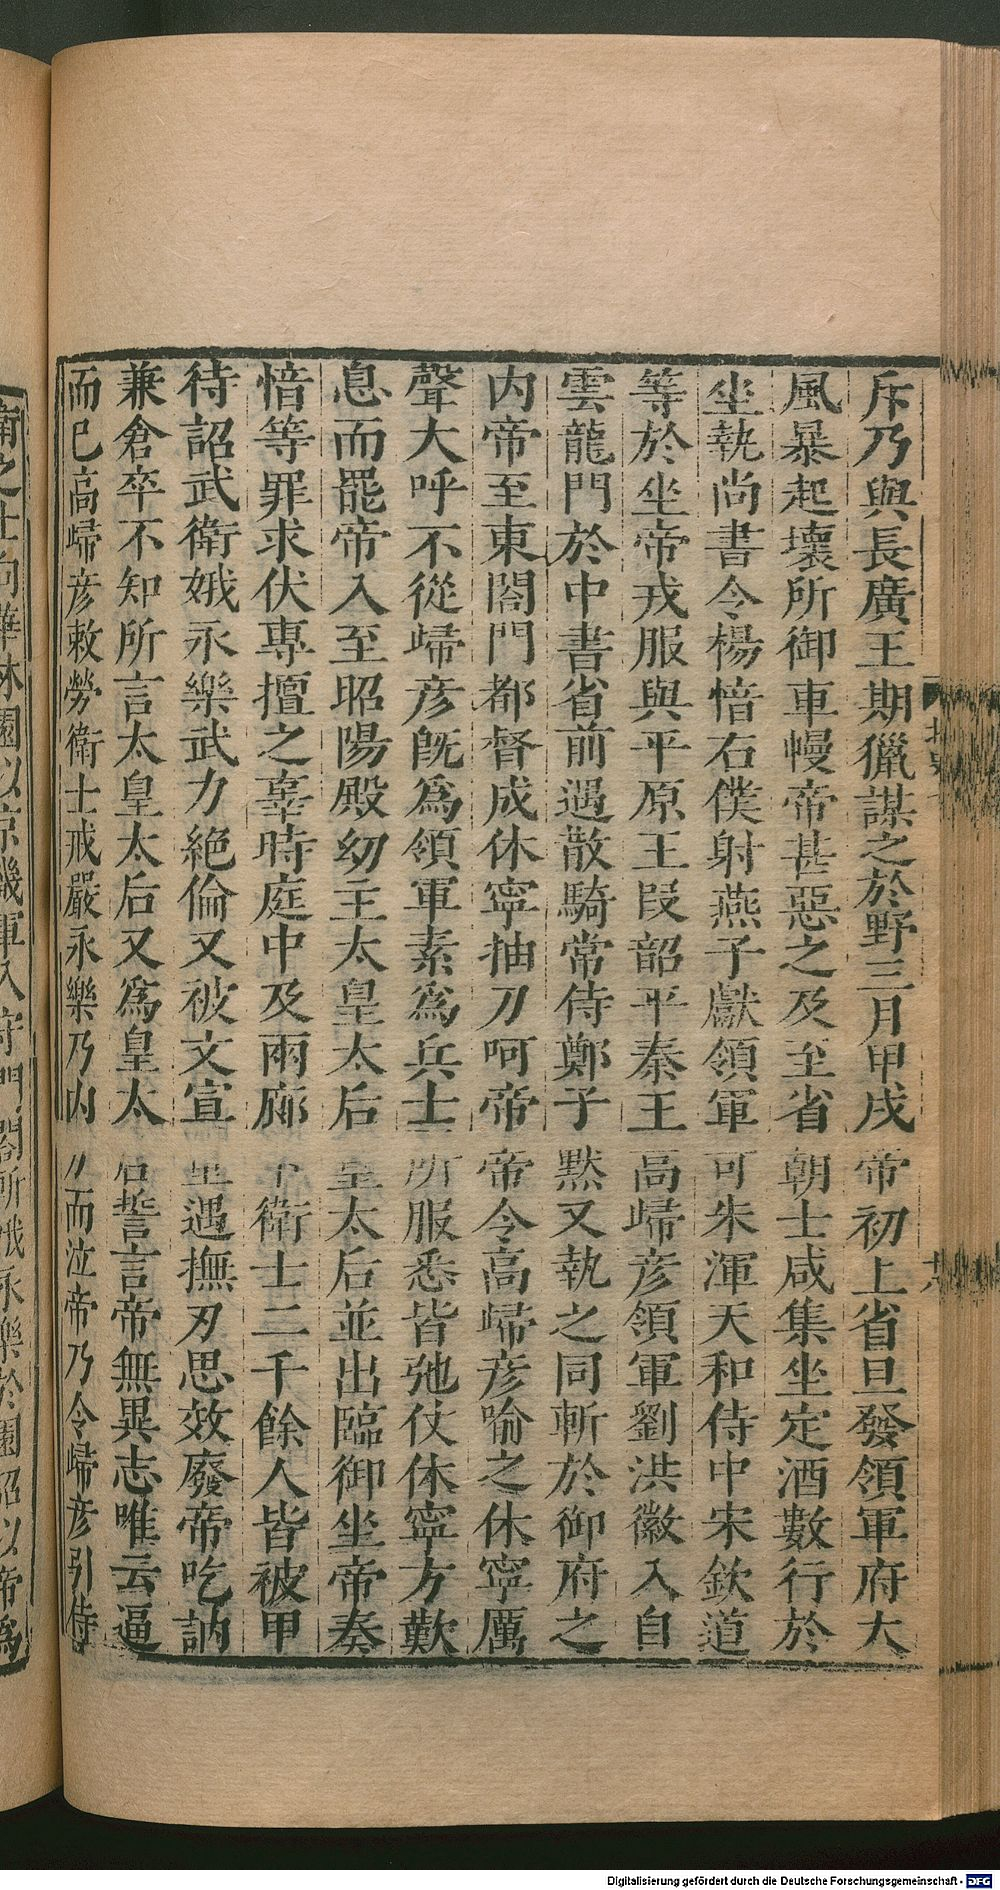 斥乃與長廣王期獵謀之於野三月甲戌帝初上省旦發領軍府大
風暴起壞所御車幔帝甚惡之及至省朝士咸集坐定酒數行於
坐執尚書令楊愔右僕射燕子獻領軍可朱渾天和侍中宋欽道
等於坐帝戎服與平原王段韶平秦王高歸彦領軍劉洪徽入自
雲龍門於中書省前遇散騎常侍鄭子黙又執之同斬於御府之
内帝至東閤門都督成休寧抽刀呵帝帝令高歸彦喻之休寧厲
聲大呼不從歸彦旣爲領軍素爲兵士所服悉皆弛仗休寧方歎
息而罷帝入至昭陽殿幼主太皇太后皇太后並出臨御坐帝奏
愔等罪求伏專擅之辜時庭中及兩廊下衛士二千餘人皆被甲
待詔武衛娥永樂武力絶倫又被文宣重遇撫刃思效廢帝吃訥
兼倉卒不知所言太皇太后又爲皇太后誓言帝無異志唯云逼
而已高歸彦敕勞衛士戒嚴永樂乃内刀而泣帝乃令歸彦引侍
衛之士向華林園以京畿軍入守門閤所娥永樂於園詔以帝爲
北史七
十八
Digitalisierung gefördert durch die Deutsche Forschungsgemeinschaft - DFG